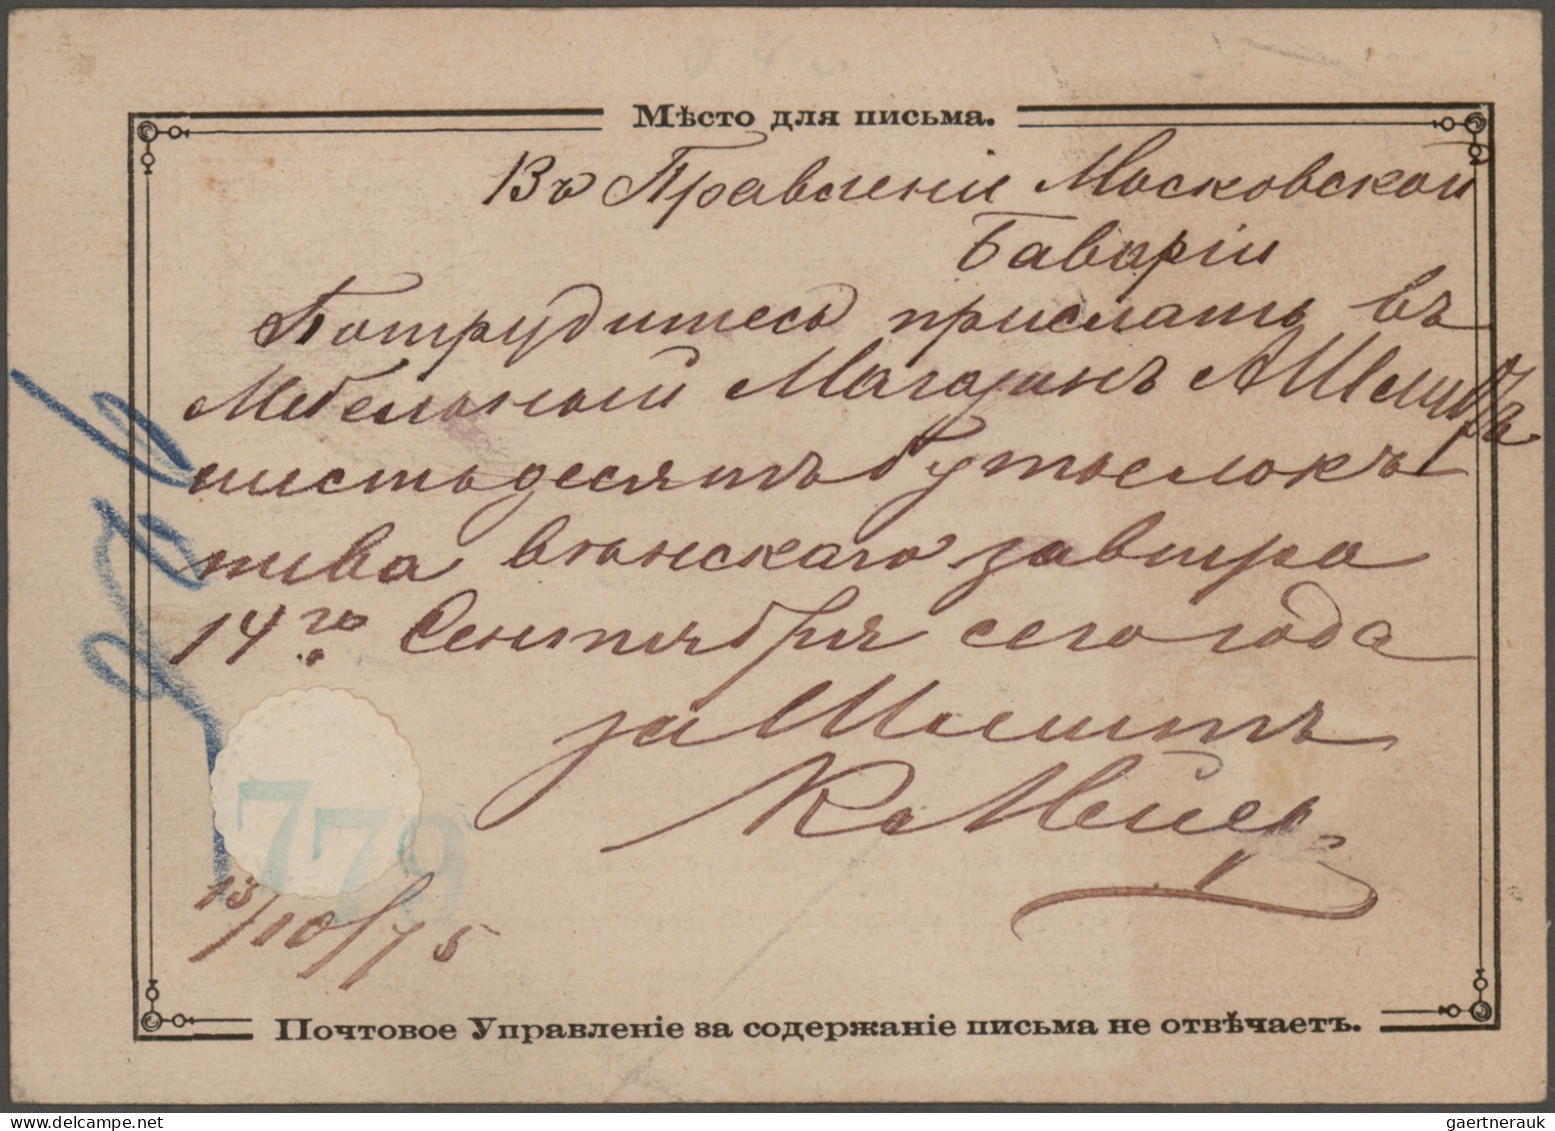 Мѣсто для письма.
Въ Правленіи Московской
Баваріи
Потрудитесь прислать въ
Мебельный Магазинъ А
шестьдесятъ бутылокъ
пива вѣнскаго завтра
14го Сентября сего года
за Шмитъ
К. Мейер
779
13/10/75
Почтовое Управленіе за содержаніе письма не отвѣчаетъ.
gaertnerauk